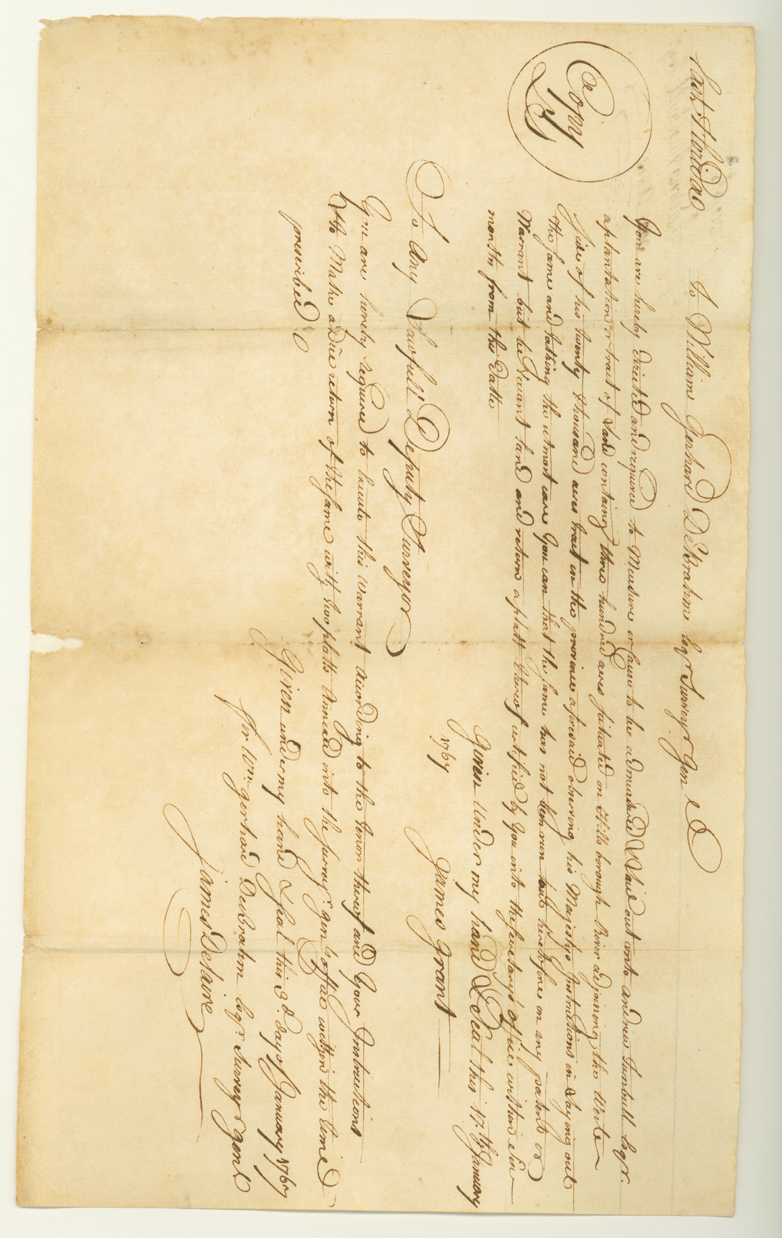 East Florida
To William Gerhard DeBrahm Esqr Surveyr Gen l
Copy
LS
You are hereby directed and required to Measure or Cause to be admeasured & Laid out unto Andrew Turnbull Esqr
a plantation or tract of Land containg three hundred acres Situated on Hillsborough River adjoining the Weste
Side of his twenty thousand acres tract in the province aforesaid observing his Majestys Instructions in Laying out
the same and takting the utmost care You can that the same has not been run out heretofore on any patent or
Warrant but be Vacant land and return a platt thereof certified by You into the Secretarys office within Six
months from the Date
Given under my hand & Seal this 17.th January
1767
James Grant
To Any Lawfull Deputy Surveyor
You are hereby required to Execute this Warrant according to the tenor thereof and Your Instructions
to Make a due return of the same with two platts Annexed into the Surveyr genls office within the time
prescribed
Given under my hand & Seal this 3d. day of January 1767
for Wm gerhard DeBrahm Esqr Surveyr genl
James Delaire